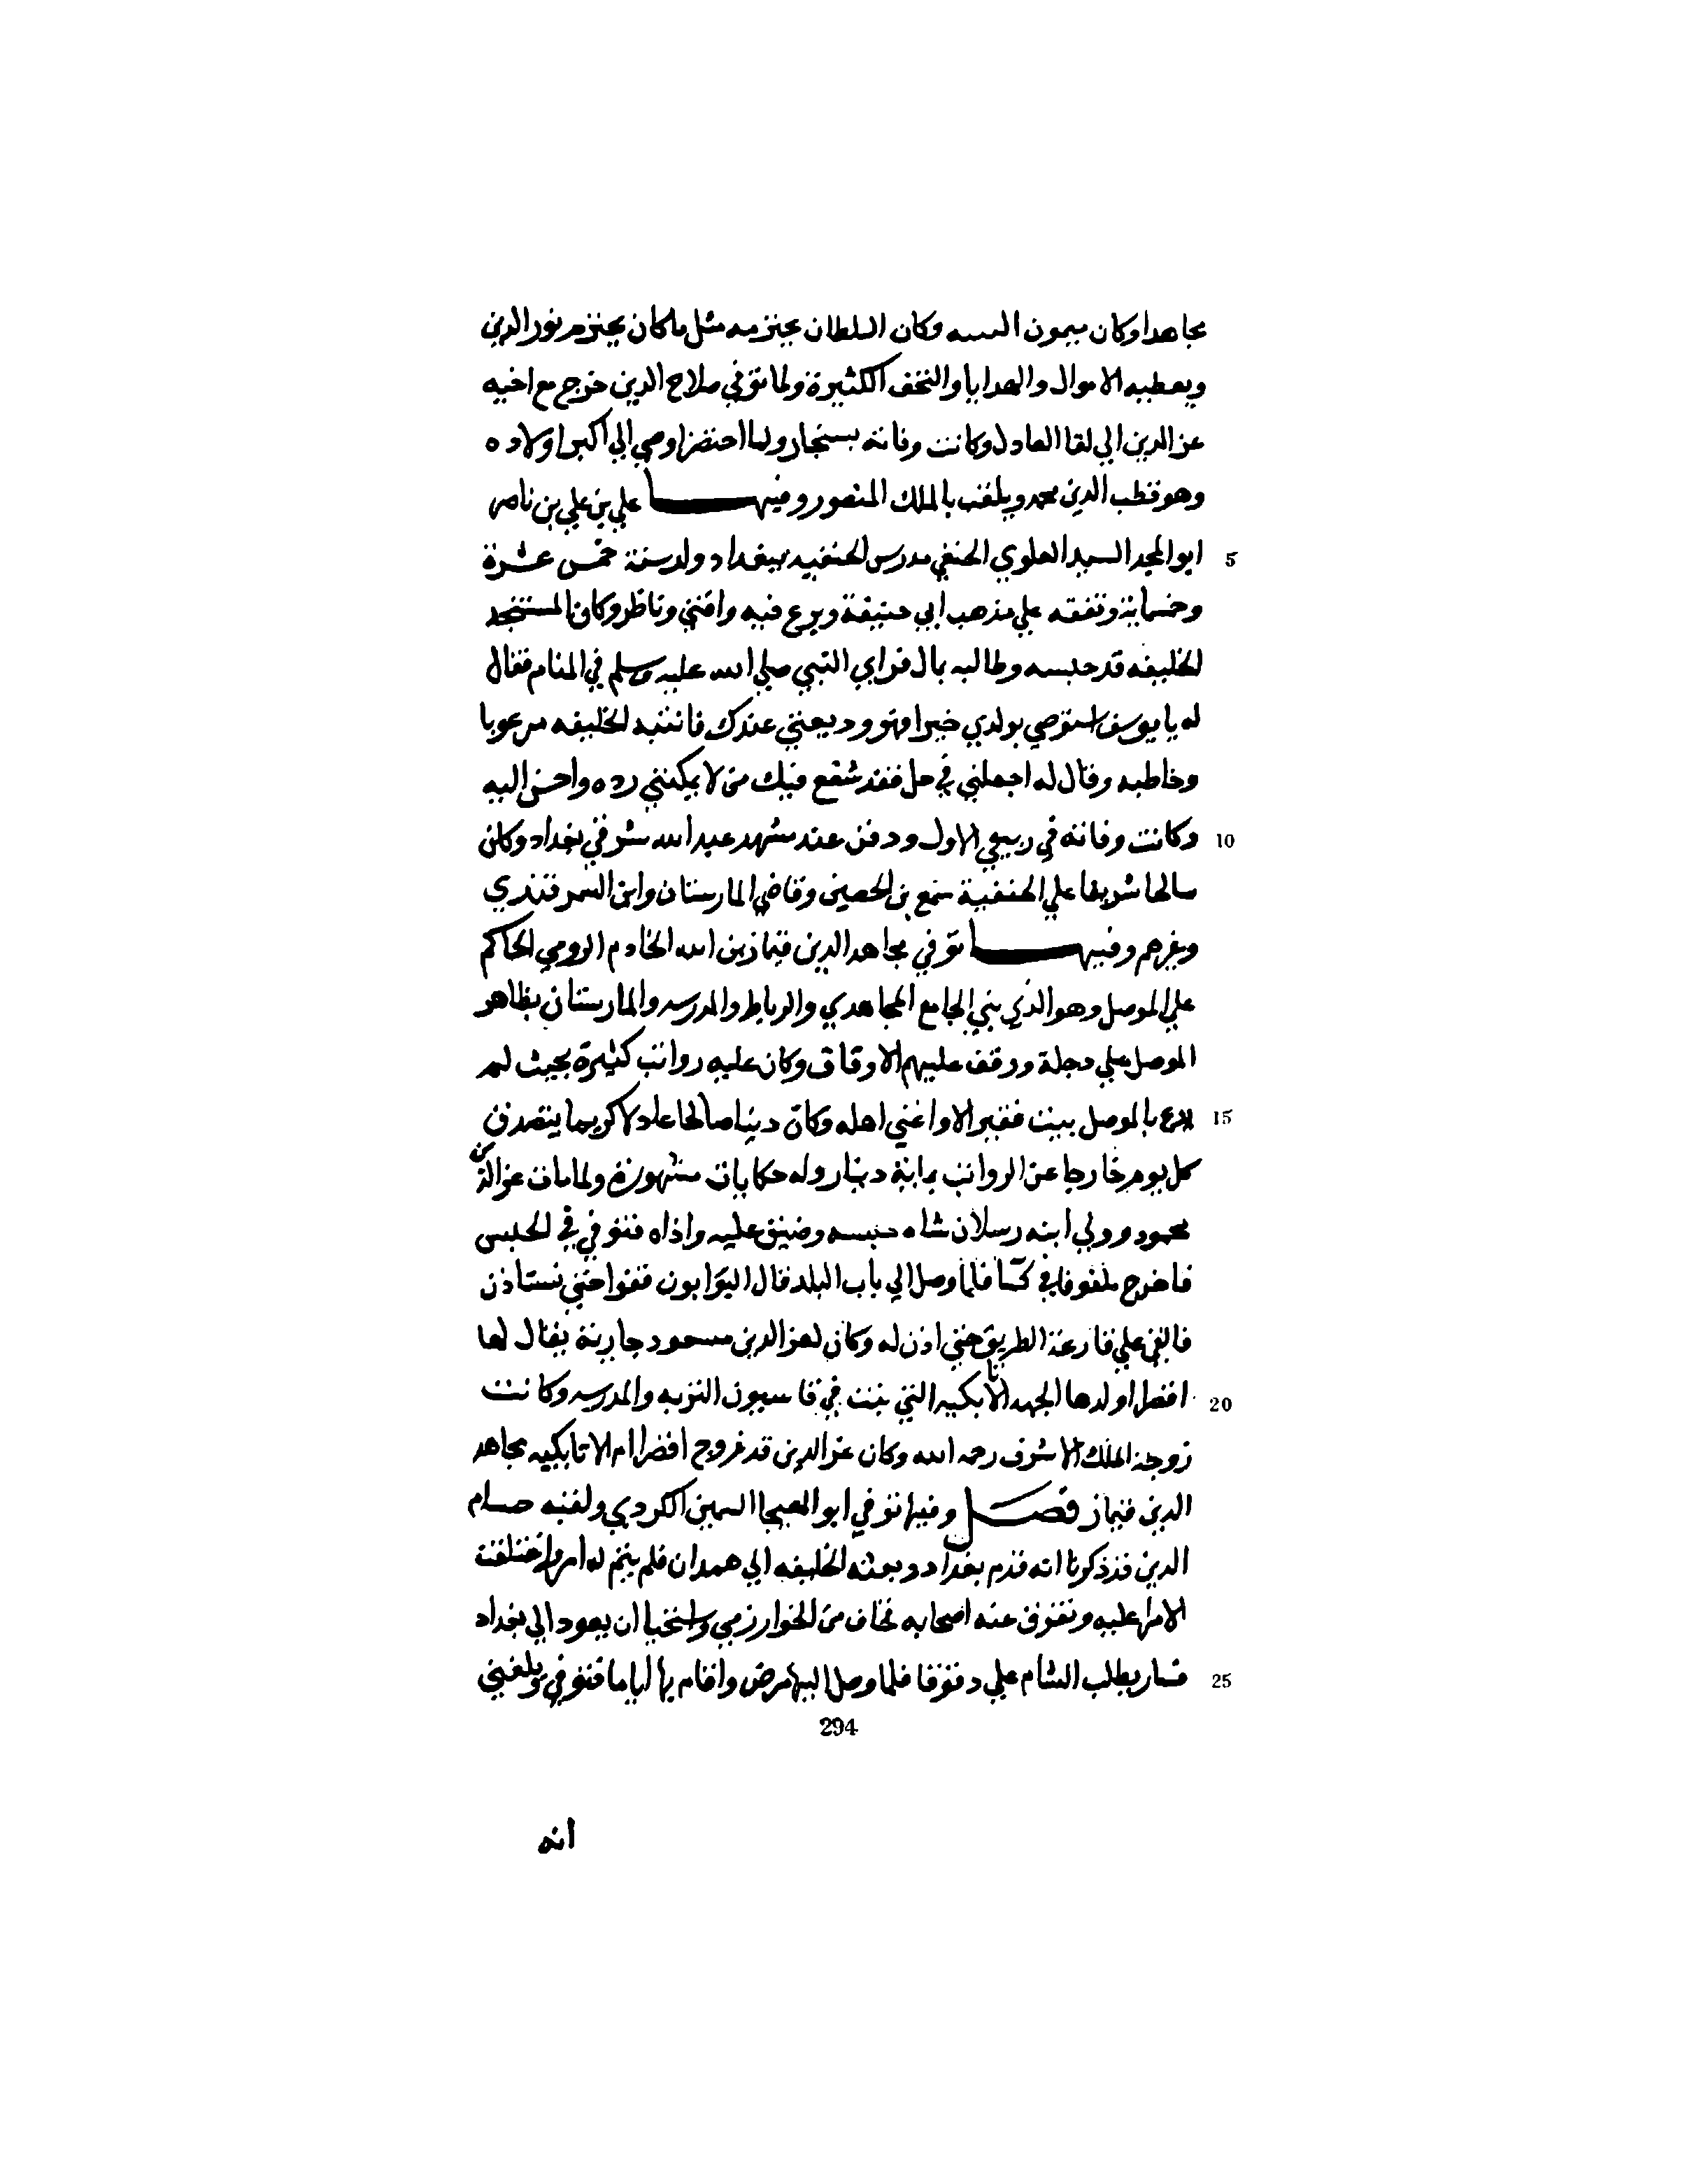 مجاهدا وكان ميمون النقيبه وكان السلطان يحترمه مثل ماكان يحترم نور الدين
ويعطيه الاموال والهدايا والتحف الكثيرة ولما توفي صلاح الدين خرج مع اخيه
عز الدين الي لقا العادل وكانت وفاته بسنجار ولما احتضر اوصي الي اكبر اولاده
وهو قطب الدين محمد ويلقب بالملك المنصور وفيها علي بن علي بن ناصر
ابو المجد السيد العلوي الحنفي مدرس الحنفيه ببغداد ولد سنة خمس عشرة 5
وخسماية وتفقه علي مذهب ابي حنيفة وبرع فيه وافتي وناظر وكان المستنجد
الخليفه قد حبسه وطالبه بمال فراي النبي صلي الله عليه وسلم في المنام فقال
له يا يوسف استوصي بولدي خيرا فهو وديعتي عندك فانتبه الخليفه مرعوبا
وخاطبه وقال له اجعلني في حل فقد شفع فيك من لا يمكنني رده واحسن اليه
وكانت وفاته في ربيع الاول ودفن عند مشهد عبد الله شرقي بغداد وكان 10
صالحا شريفا علي الحنفية سمع بن الحصين وقاضي المارستان وابن السمرقندي
وغيرهم وفيها توفي مجاهد الدين قيماز بن الله الخادم الرومي الحاكم
علي الموصل وهو الذي بني الجامع المجاهدي والرباط والمدرسه والمارستان بظاهر
الموصل علي دجلة ووقف عليهم الاوقاف وكان عليه رواتب كثيرة بحيث لم
يدع بالموصل بيت فقير الا واغني اهله وكان دينا صالحا عادلا كريما يتصدق 15
كل يوم خارجا عن الرواتب بماية دينار وله حكايات مشهورة ولما مات عز الدين
محمود وولي ابنه رسلان شاه حبسه وضيق عليه واذاه فتوفي في الحبس
فاخرج ملفوفا في كسا فلما وصل الي باب البلد قال البوابون قفوا حتي نستاذن
فالقي علي قارعة الطريق حتي اذن له وكان لعز الدين مسعود جارية يقال لها
افصرا ولدها الجهه الاتابكيه التي بنت في قاسيون التربه والمدرسه وكانت 20
زوجة الملك الاشرف رحمه الله وكان عز الدين قد زوج افصرا ام الاتابكيه مجاهد
الدين قيماز فصل وفيها توفي ابو الهيجا السمين الكردي ولقبه حسام
الدين قد ذكرنا انه قدم بغداد وبعثه الخليفه الي همدان فلم يتم له امر واختلفت
الامرا عليه وتفرق عنه اصحابه فخاف من الخوارزمي واستحيا ان يعود الي بغداد
فسار يطلب الشام علي دقوقا فلما وصل اليها مرض واقام بها اياما فتوفي وبلغني 25
294
انه